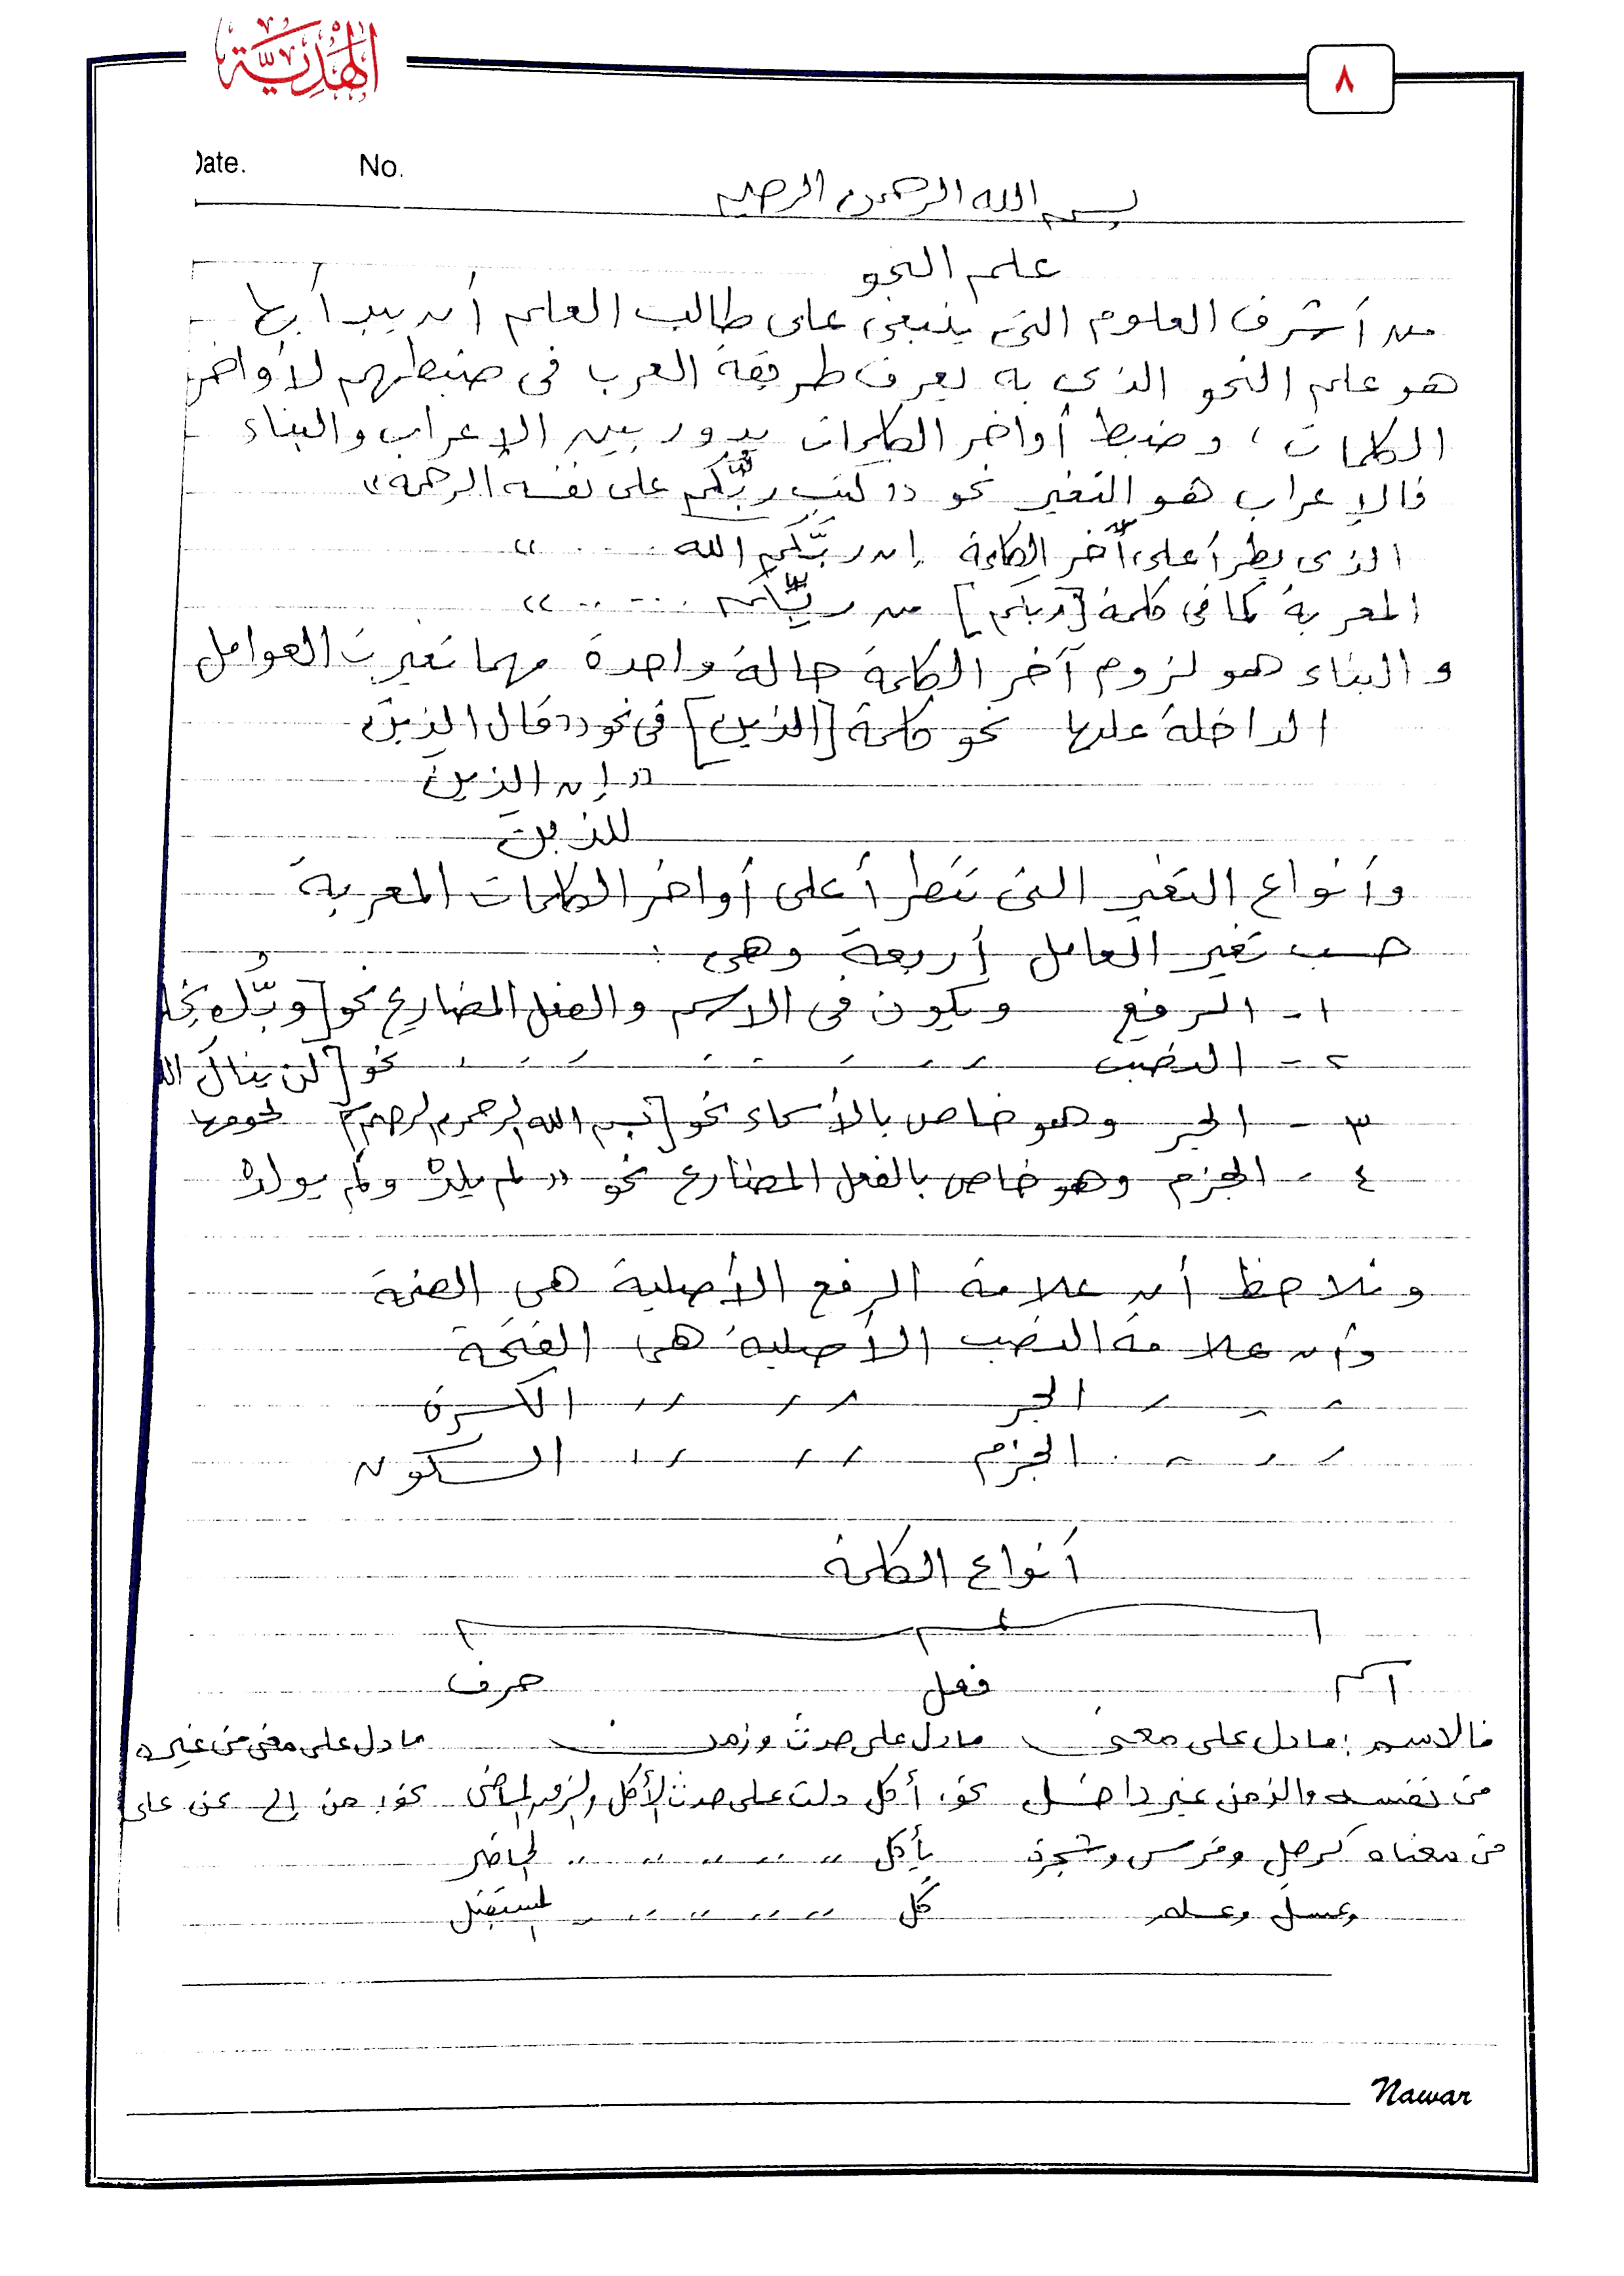 الهَدِيَّة
٨
Date. No.
بسم الله الرحمن الرحيم
علم النحو
من أشرف العلوم التى ينبغى على طالب العلم أن يبدأ بها
هو علم النحو الذى به يعرف طريقة العرب فى ضبطهم لأواخر
الكلمات ، وضبط أواخر الكلمات يدور بين الإعراب والبناء
فالإعراب هو التغير نحو "كتب ربُّكم على نفسه الرحمة"
الذى يطرأ على آخر الكلمة إن ربَّكم الله ..... "
المعربة كما فى كلمة [ربكم] من ربِّكم ..... "
والبناء هو لزوم آخر الكلمة حالة واحدة مهما تغيرت العوامل
الداخلة عليها نحو كلمة [الذين] فى نحو "قال الذينَ
"إن الذينَ
للذينَ
وأنواع التغير التى تطرأ على أواخر الكلمات المعربة
حسب تغير العامل أربعة وهى :
١ - الرفع ويكون فى الاسم والفعل المضارع نحو [وربُّك يخلقُ
٢ - النصب نحو [لن ينالَ الله
٣ - الجر وهو خاص بالأسماء نحو [بسم الله الرحمن الرحيم] لحومها
٤ - الجزم وهو خاص بالفعل المضارع نحو "لم يلدْ ولم يولدْ
ونلاحظ أن علامة الرفع الأصلية هى الضمة
وأن علامة النصب الأصلية هى الفتحة
الجر الكسرة
الجزم السكون
أنواع الكلمة
اسم فعل حرف
فالاسم : مادل على معنى مادل على حدث وزمن مادل على معنى فى غيره
فى نفسه والزمن غير داخل نحو: أكل دلت على حدث الأكل والزمن الماضى نحو: من إلى عن على
فى معناه كرجل وفرس وشجرة يأكل " " " " " الحاضر
وعسل كل " " " " المستقبل
Nawar